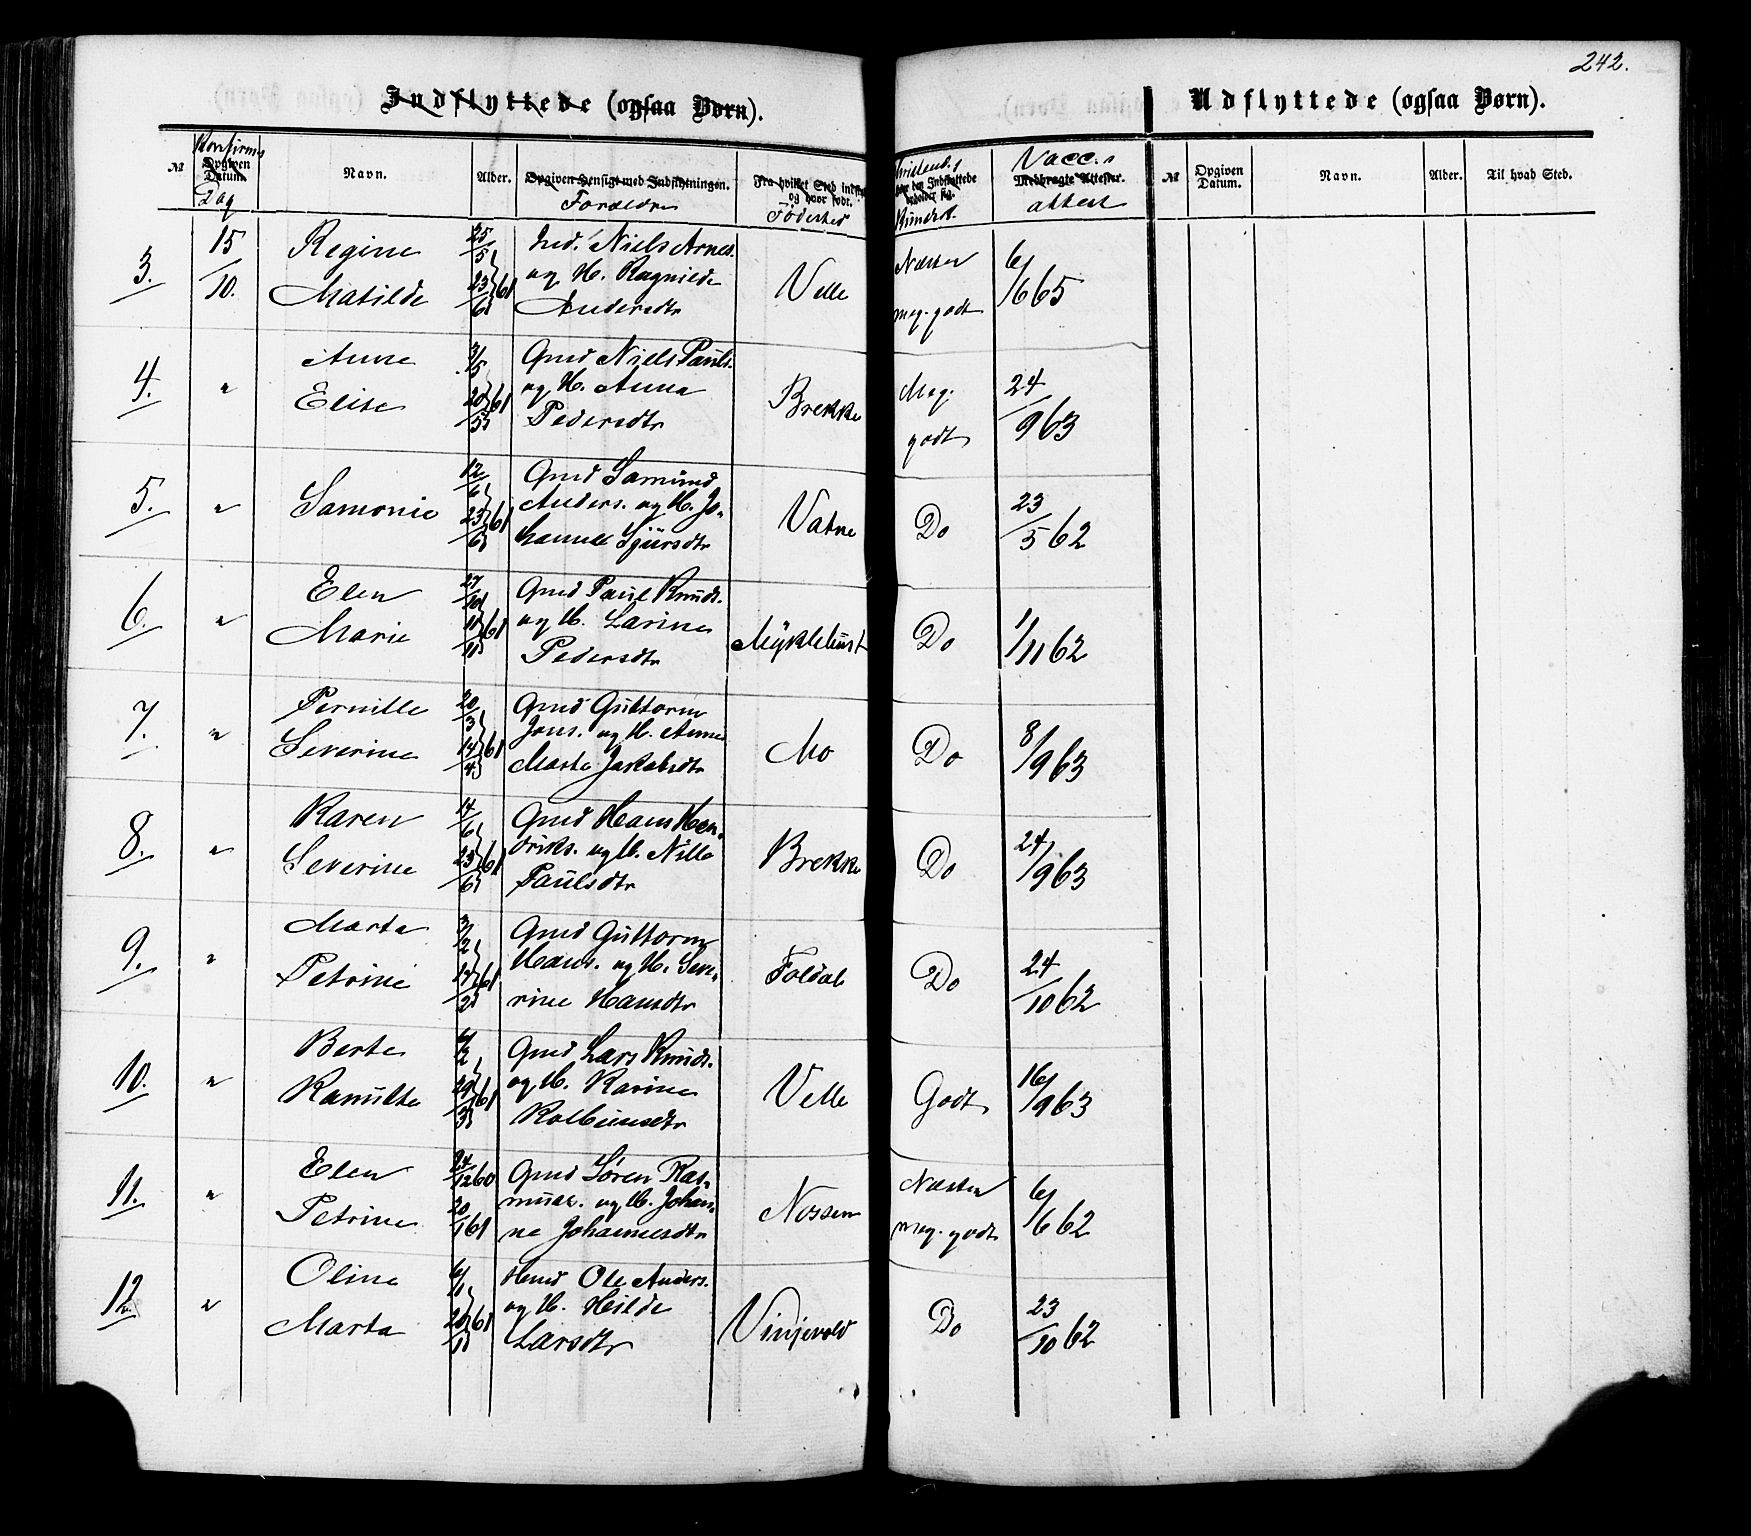 242.
Indflyttede (ogsaa Børn).
Udflyttede (ogsaa Børn).
№ Konfirms Opgiven Datum. Dag Navn. Alder. Opgiven Hensigt med Indflytningen. Forældre Fra hvilket Sted indfl. og hvor født. Fødested Kristend. har den Indflyttede Kundsk. Vacc. Medbragte Attester. attest № Opgiven Datum. Navn. Alder. Til hvad Sted.
3. 15/10. Regine Matilde 25/5, 23/6 61 Ind. Niels Arnes. og H. Ragnilde Andersdtr Velle Næsten meg. godt 6/6 65
4. " Anne Elise 3/5 20/5 61 Gmd Niels Pauls. og H. Anna Pedersdtr Brekke Meg. godt 24/9 63
5. " Samonie 12/6, 23/6 61 Gmd Samund Anders. og H. Johanne Sjursdtr Vatne Do 23/5 62
6. " Elen Marie 27/10 10/11 61 Gmd Paul Knuds. og H. Larine Pedersdtr Myklebust Do 1/11 62
7. " Pernille Severine 20/3, 14/4 61 Gmd Guttorm Jons. og H. Anne Marta Jakobsdtr Mo Do 8/9 63
8. " Karen Severine 14/6, 23/6 61 Gmd Hans Hendriks. og H. Nille Paulsdtr Brekke Do 24/9 63
9. " Marta Petrine 3/2, 17/2 61 Gmd Guttorm Hans. og H. Severine Hansdtr Foldal Do 24/10 62
10. " Berte Ramulte 6/2, 29/3 61 Gmd Lars Knuds. og H. Karine Kolbeinsdtr Velle Godt 16/9 63
11. " Elen Petrine 24/12 60 20/1 61 Gmd Søren Rasmuss. og H. Johanne Johannesdtr Nossen Næsten meg. godt 6/6 62
12. " Oline Marta 6/1, 20/1 61 Hmd Ole Anders. og H. Hilde Larsdtr Vinjevold Do 23/10 62